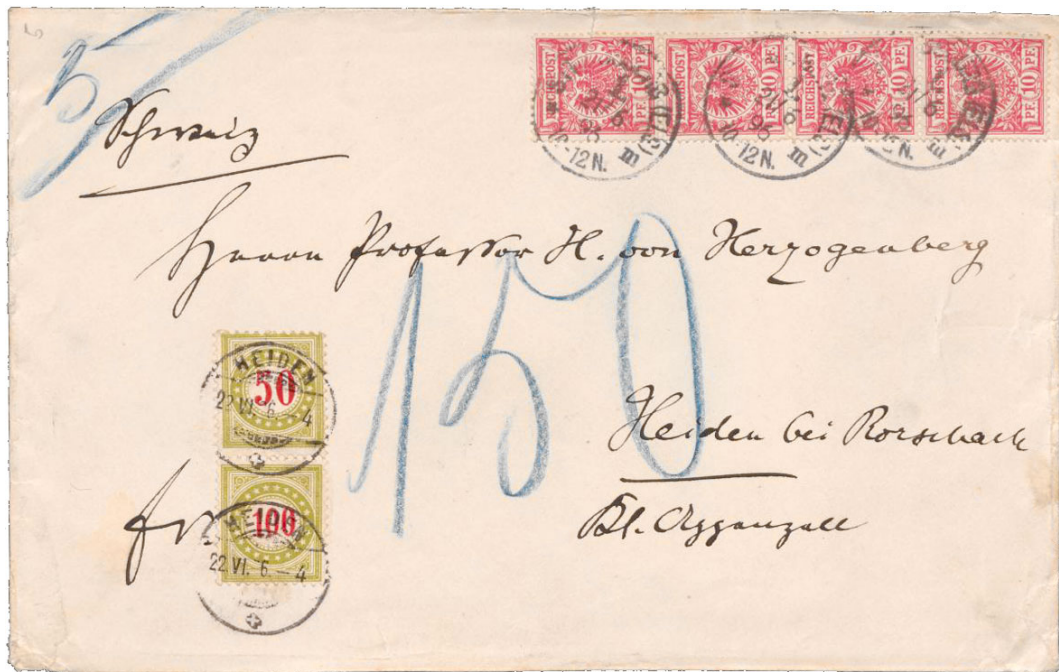 5
Schweiz
REICHSPOST 10 PF. REICHSPOST 10 PF. REICHSPOST 10 PF. REICHSPOST 10 PF.
10-12N.
10-12N.
Herrn Professor H. von Herzogenberg
150
HEIDEN
50
22 VI. 6. – 4
Heiden bei Rorschach
100
HEIDEN
22 VI. 6. – 4
fr
Kt. Appenzell